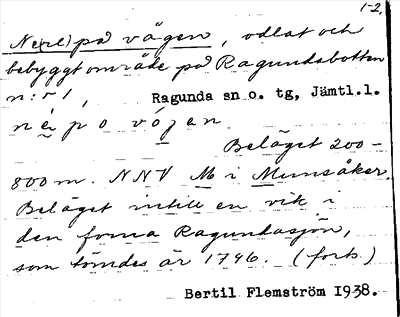 1-2.
Ne(re) på vägen, odlat och
bebyggt område på Ragundabotten
n:r 1, Ragunda sn o. tg, Jämtl.l.
né po vójen.
Beläget 200-
800 m. NNV M i Munsåker.
Beläget intill en vik i
den forna Ragundasjön,
som tömdes år 1796. (forts.)
Bertil Flemström 1938.